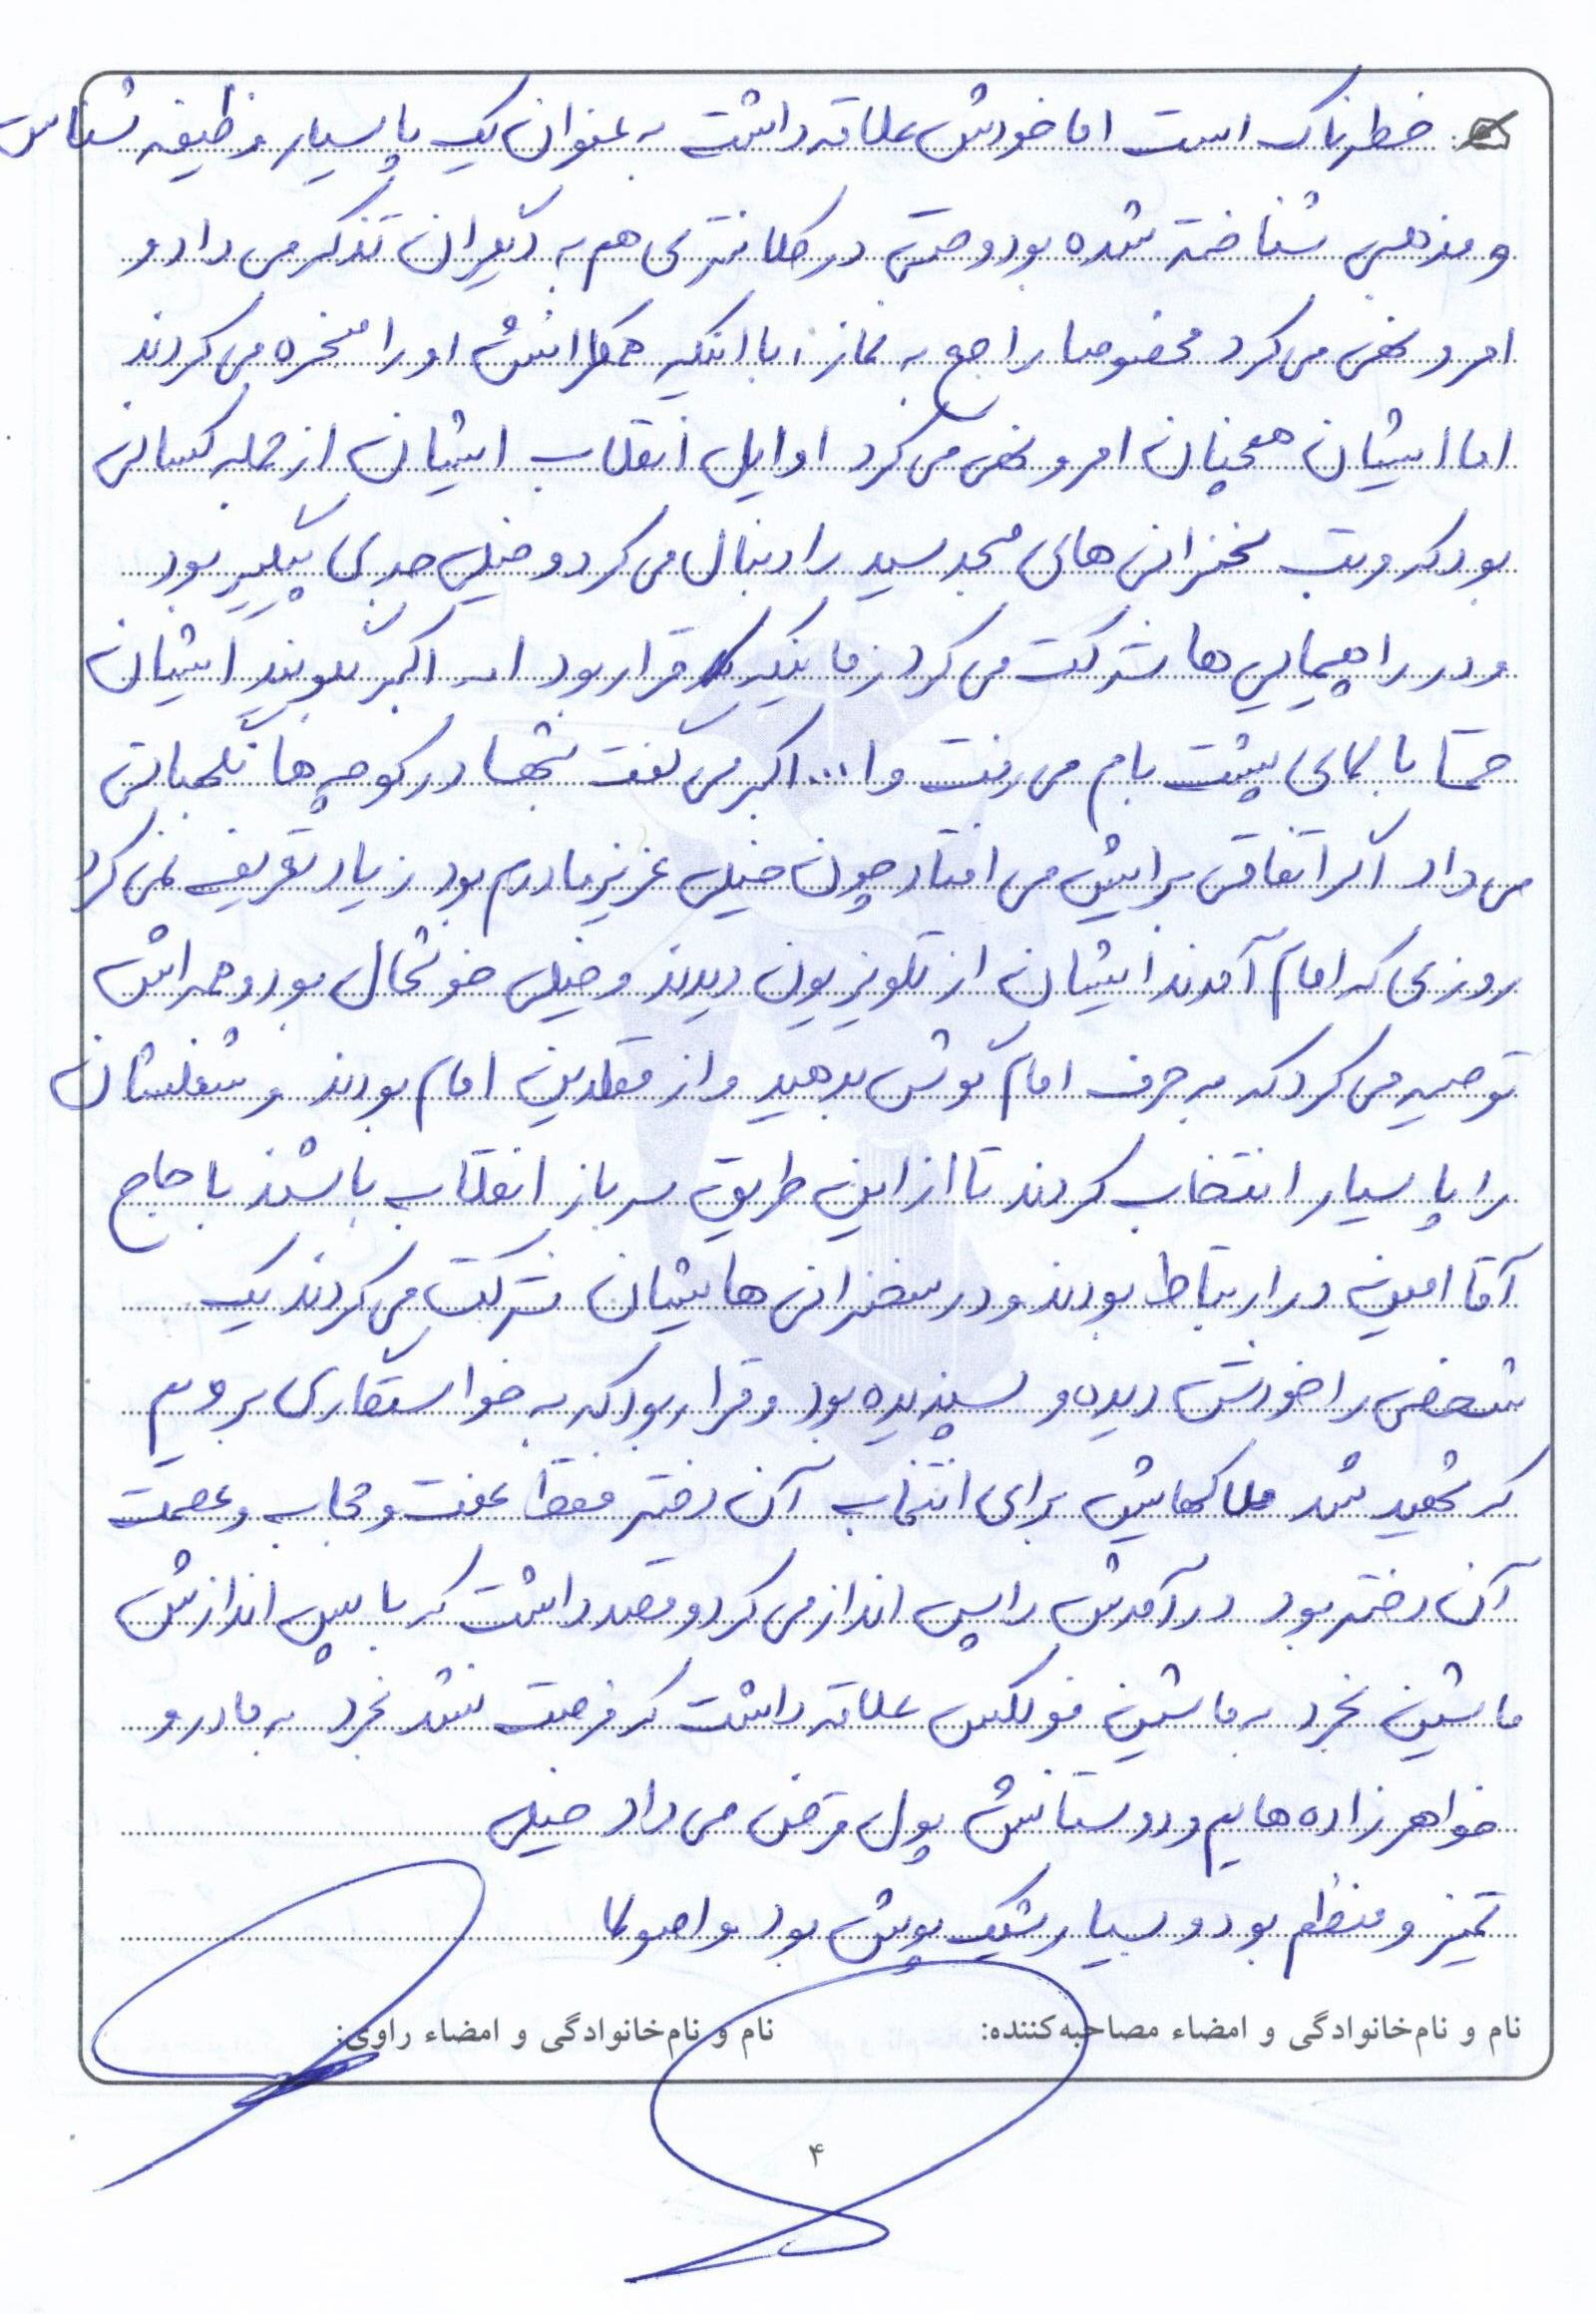 خطرناک است اما خودش علاقه داشت به عنوان یک پاسیار وظیفه شناس
و مذهبی شناخته شده بود و حتی در کلانتری هم به دیگران تذکر می داد و
امر و نهی می کرد مخصوصا راجع به نماز، با اینکه همکارانش او را مسخره می کردند
اما ایشان همچنان امر و نهی می کرد اوایل انقلاب ایشان از جمله کسانی
بود که مرتب سخنرانی های مسجد سید را دنبال می کرد و خیلی جدی پیگیر بود
و در راهپیمایی ها شرکت می کرد زمانیکه قرار بود الله اکبر بگویند ایشان
حتما بالای پشت بام می رفت و ا... اکبر می گفت شبها در کوچه ها نگهبانی
می داد اگر اتفاقی برایش می افتاد چون خیلی عزیز مادرم بود زیاد تعریف نمی کرد
روزی که امام آمدند ایشان از تلویزیون دیدند و خیلی خوشحال بود و همه اش
توصیه می کرد که به حرف امام گوش بدهید و از مقلدین امام بودند و شغلشان
را پاسیار انتخاب کردند تا از این طریق سرباز انقلاب باشند با حاج
آقا امینی در ارتباط بودند و در سخنرانی هایشان شرکت می کردند یک
شخصی را خودش دیده و پسندیده بود و قرار بود که به خواستگاری برویم
که شهید شد ملاکهایش برای انتخاب آن دختر فقط عفت و حجاب و عصمت
آن دختر بود درآمدش را پس انداز می کرد و قصد داشت که با پس اندازش
ماشین بخرد به ماشین فولکس علاقه داشت که فرصت نشد بخرد به مادر و
خواهرزاده هایم و دوستانش پول قرض می داد خیلی
تمیز و منظم بود و بسیار شیک پوش بود و اصولا
نام و نام‌خانوادگی و امضاء مصاحبه‌کننده: نام و نام‌خانوادگی و امضاء راوی:
۴